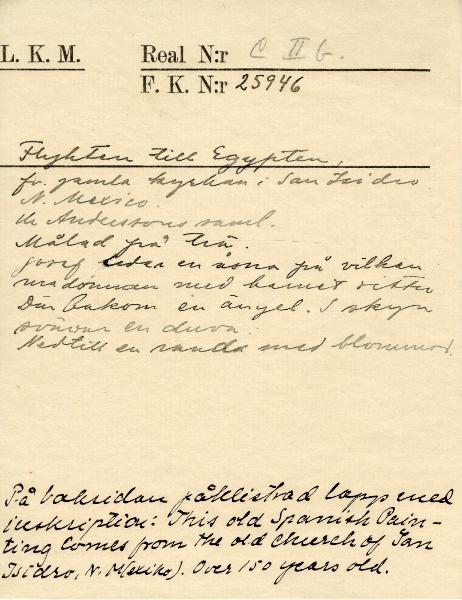 L. K. M. Real N:r C II b.
F. K. N:r 25946
Flykten till Egypten,
fr. gamla kyrkan i San Isidro
N. Mexico.
ur Anderssons saml.
Målad på trä.
Josef ledar en åsna på vilken
madonnan med barnet sitter
Där bakom en ängel. I skyn
svävar en duva.
Nedtill en rand med blommor.
På baksidan påklistrad lapp med
inskription: This old Spanish Pain-
ting comes from the old church of San
Isidro, N. M(exiko). Over 150 years old.